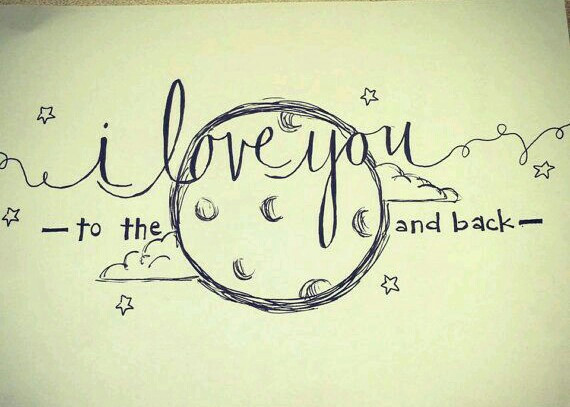 i love you
- to the and back -